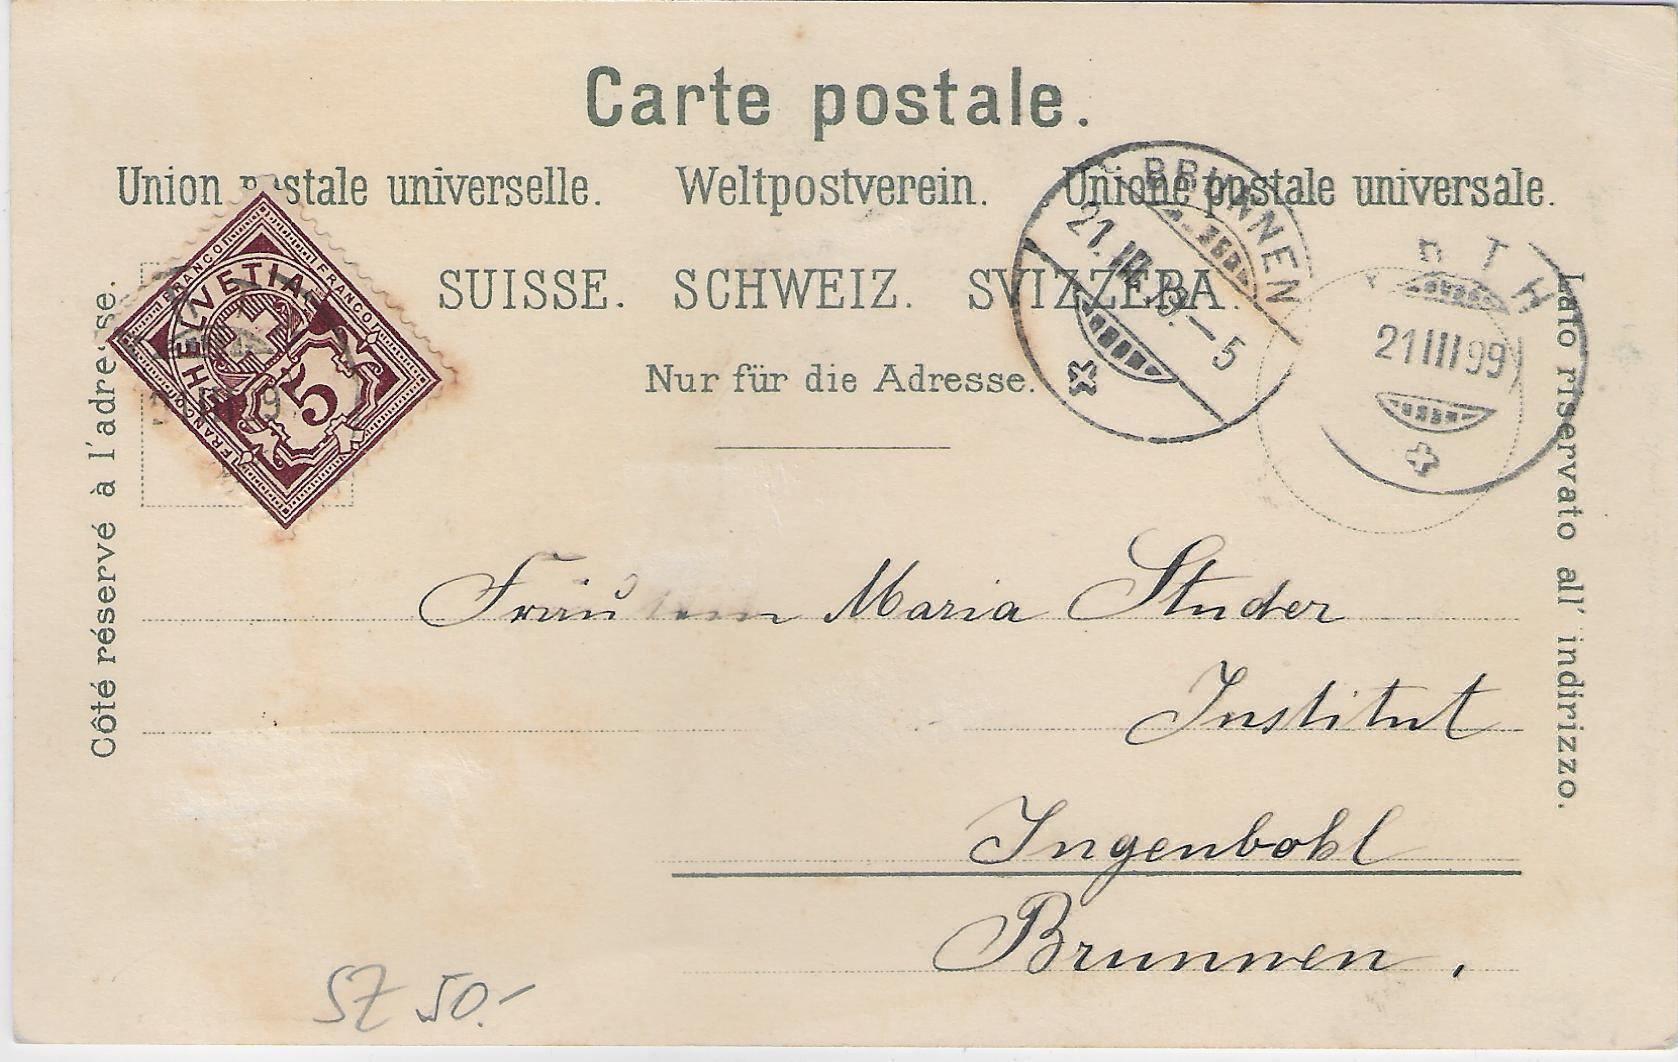 Carte postale.
Union postale universelle. Weltpostverein. Unione postale universale.
SUISSE. SCHWEIZ. SVIZZERA.
Nur für die Adresse.
Côté réservé à l'adresse.
Lato riservato all' indirizzo.
FRANCO FRANCO FRANCO
HELVETIA
5
BRUNNEN
21. III. 9.–5
TH
21 III 99
Fräulein Maria Studer
Institut
Ingenbohl
Brunnen.
SZ 50.-